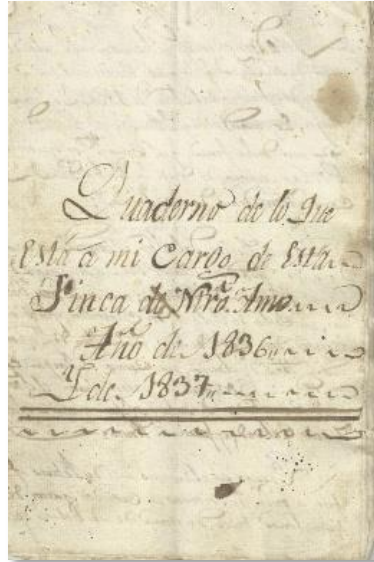 Quaderno de lo que
Está a mi Cargo de Esta
Finca de Ntrô. Amo
Año de 1836
Y de 1837